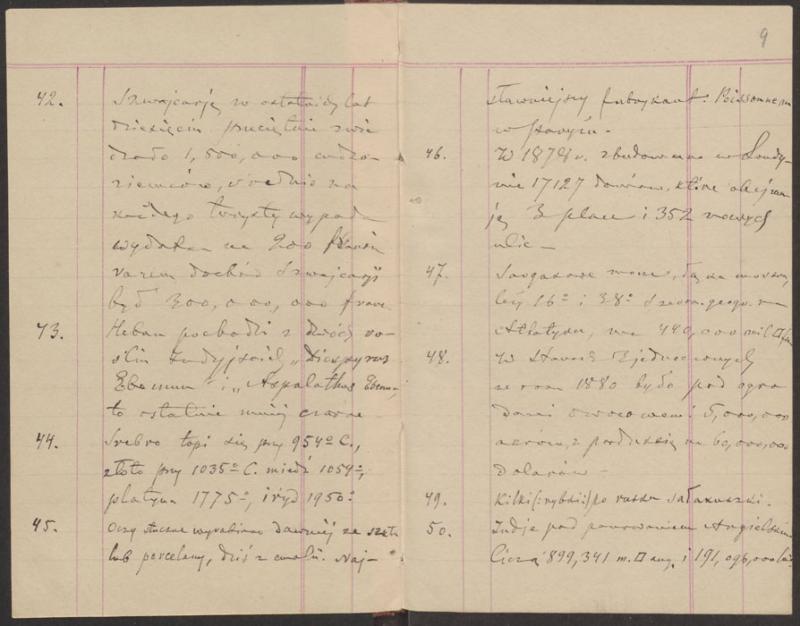 42. Szwajcarję w ostatnich lat
dziesięciu przeciętnie zwie
dzało 1,500,000 cudzo-
ziemców, średnio na
każdego turysty wypad
wydatek na 200 franków
razem dochód Szwajcarji
był 300,000,000 frank.
43. Heban pochodzi z dwóch ro-
ślin Indyjskich „Diospyros
Ebenum" i „Aspalathus Ebenus"
to ostatnie mniej czarne
44. Srebro topi się przy 954° C.,
złoto przy 1035° C. miedź 1054°,
platyna 1775°, iryd 1950°
45. Oczy sztuczne wyrabiano dawniej ze szkła
lub porcelany, dziś z emalii. Naj-
9
sławniejszy fabrykant: Boissonneau
w Paryżu.
46. W 1878 r. zbudowano w Londy-
nie 17127 domów, które obejmu-
ją 3 place i 352 nowych
ulic —
47. Sargasowe morze, leży na
16° i 38° szer. geogr. na
Atlantyku, ma 440,000 mil
48. W Stanach Zjednoczonych
w roku 1880 było pod ogro
dami owocowemi 5,000,000
akrów, z produkcją na 60,000,000
dolarów —
49. Kilki (:rybki:) po rusku
50. Indje pod panowaniem Angielskim
liczą 899,341 m. □ ang. i 191,096,000